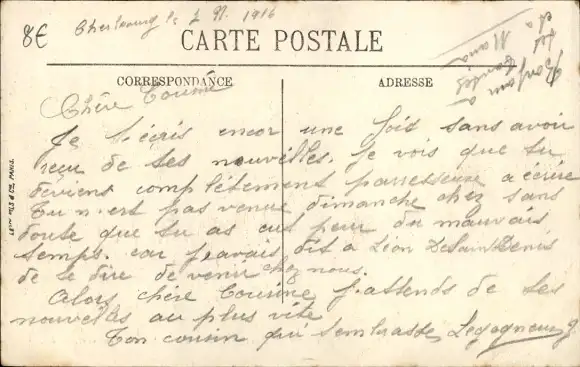 8€
Cherbourg le 1916
CARTE POSTALE
CORRESPONDANCE
ADRESSE
Bonjour a
toute ta
Chère Cousine
Je t'écris encor une fois sans avoir
reçu de tes nouvelles. Je vois que tu
deviens complètement paresseuse a écrire
Tu n'est pas venue dimanche chez sans
doute que tu as eut peur du mauvais
temps. car j'avais dit a Léon DeSaintDenis
de te dire de venir chez nous.
Alors chère Cousine j'attends de tes
nouvelles au plus vite
Ton cousin qui t'embrasse,
LEVY FILS & Cie, PARIS.